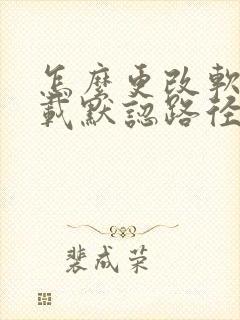 怎麼更改軟
載默認路径
裴成荣